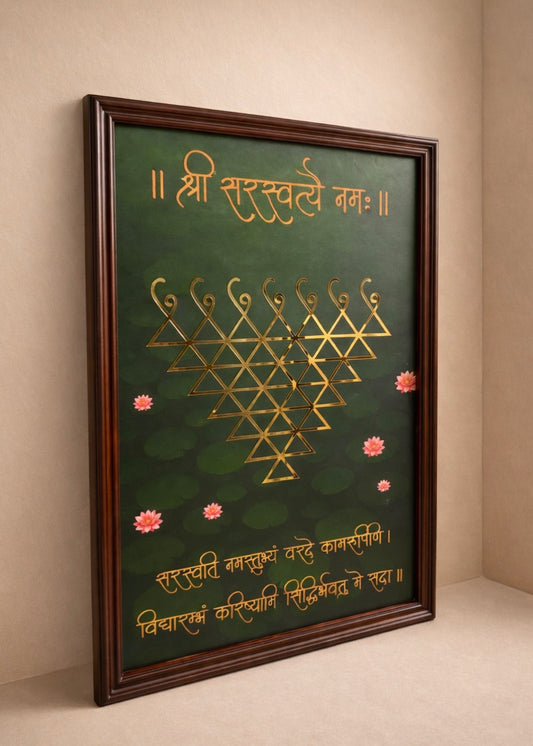 ॥ श्री सरस्वत्यै नमः ॥
सरस्वति नमस्तुभ्यं वरदे कामरुपिणि ।
विद्यारम्भं करिष्यामि सिद्धिर्भवतु मे सदा ॥